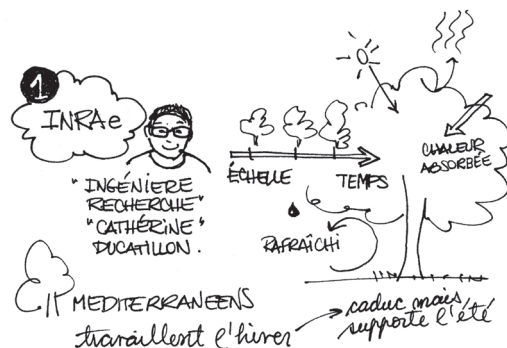 1
INRAe
"INGÉNIERE
RECHERCHE"
"CATHÉRINE"
DUCATILLON.
ÉCHELLE TEMPS
CHALEUR
ABSORBÉE
RAFRAÎCHI
MEDITERRANEENS
travaillent l'hiver
caduc mais
supporte l'été